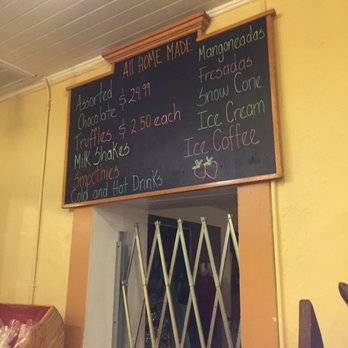 All HOME MADE
Assorted
Chocolate $ 24.99
Truffles $ 2.50 each
Milk Shakes
Smoothies
Cold and Hot Drinks
Mangoneadas
Fresadas
Snow Cone
Ice Cream
Ice Coffee